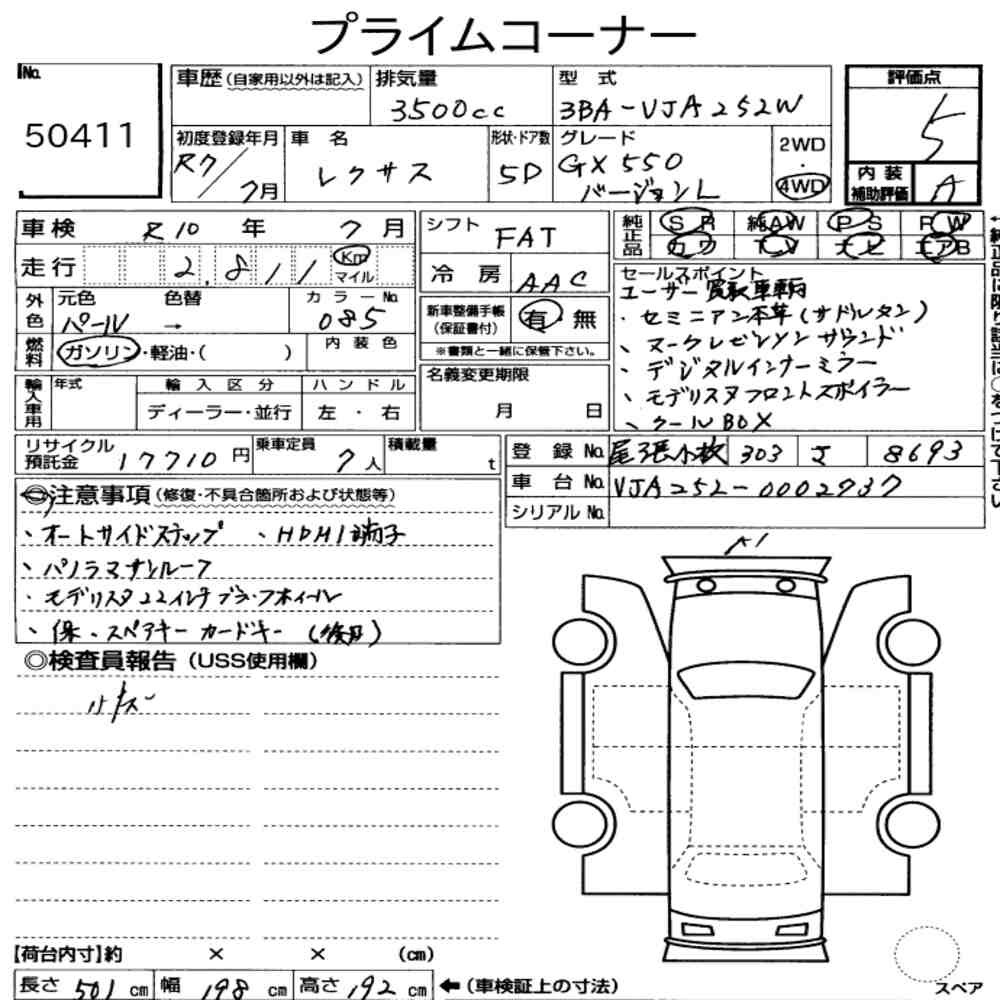 プライムコーナー
No.
50411
車歴(自家用以外は記入)
排気量
3500cc
型 式
3BA-VJA252W
評価点
5
初度登録年月
R7/7月
車 名
レクサス
形状・ドア数
5D
グレード
GX550
バージョンL
2WD
・
4WD
内 装
補助評価
A
車検 R10 年 7月
シフト
FAT
純正品
SR 純AW PS PW
カワ TV ナビ エアB
走行 2,811
Km
マイル
冷 房
AAC
セールスポイント
ユーザー買取車輌
・セミアニリン本革(サドルタン)
、マークレビンソンサウンド
・デジタルインナーミラー
・モデリスタフロントスポイラー
・クールBOX
外色
元色 色替
パール →
カラーNo.
085
新車整備手帳
(保証書付)
有 無
※書類と一緒に保管下さい。
燃料
ガソリン・軽油・( )
内装色
名義変更期限
月 日
輸入車用
年式
輸入区分
ディーラー・並行
ハンドル
左 ・ 右
リサイクル
預託金 17710円
乗車定員
7人
積載量
t
登 録 No. 尾張小牧 303 さ 8693
車 台 No. VJA252-0002937
シリアル No.
◎注意事項(修復・不具合箇所および状態等)
、オートサイドステップ 、HDMI端子
、パノラマサンルーフ
・モデリスタ22インチブラックホイール
、保、スペアキー カードキー (後日)
◎検査員報告(USS使用欄)
A1
【荷台内寸】約 × × (cm)
長さ 501 cm 幅 198 cm 高さ 192 cm ←(車検証上の寸法)
スペア